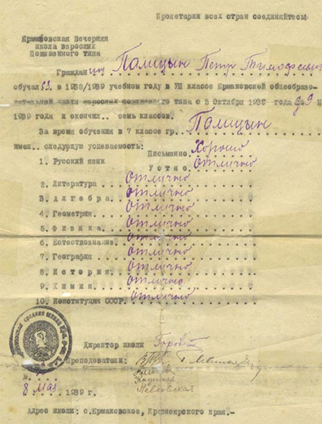 Пролетарии всех стран соединяйтесь!
Ермаковская Вечерняя
школа взрослых
Повышенного типа
Граждан ину Полицын Петр Тимофеевич
обучал ся в 1938/1939 учебном году в VII классе Ермаковской общеобразо-
вательной школы взрослых повышенного типа с 5 Октября 1938 года 9
1939 года и окончил семь классов.
За время обучения в 7 классе гр. Полицын
имел следующую успеваемость:
Письменно Хорошо
1. Русский язык Устно отлично
2. Литература отлично
3. Алгебра отлично
4. Геометрия отлично
5. Физика отлично
6. Естествознание отлично
7. География отлично
8. История отлично
9. Химия отлично
10. Конституция СССР отлично
Директор школы
Преподаватели:
8 мая 1939 г.
Адрес школы: с.Ермаковское, Красноярского края.-